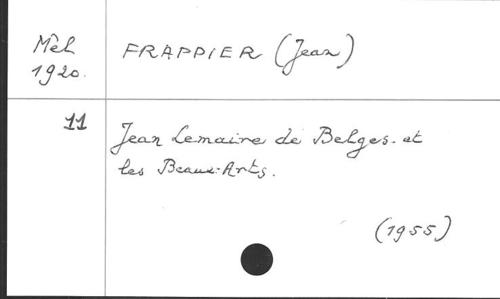 Mêl FRAPPIER (Jean)
1920.
11 Jean Lemaire de Belges. et
les Beaux-Arts.
(1955)